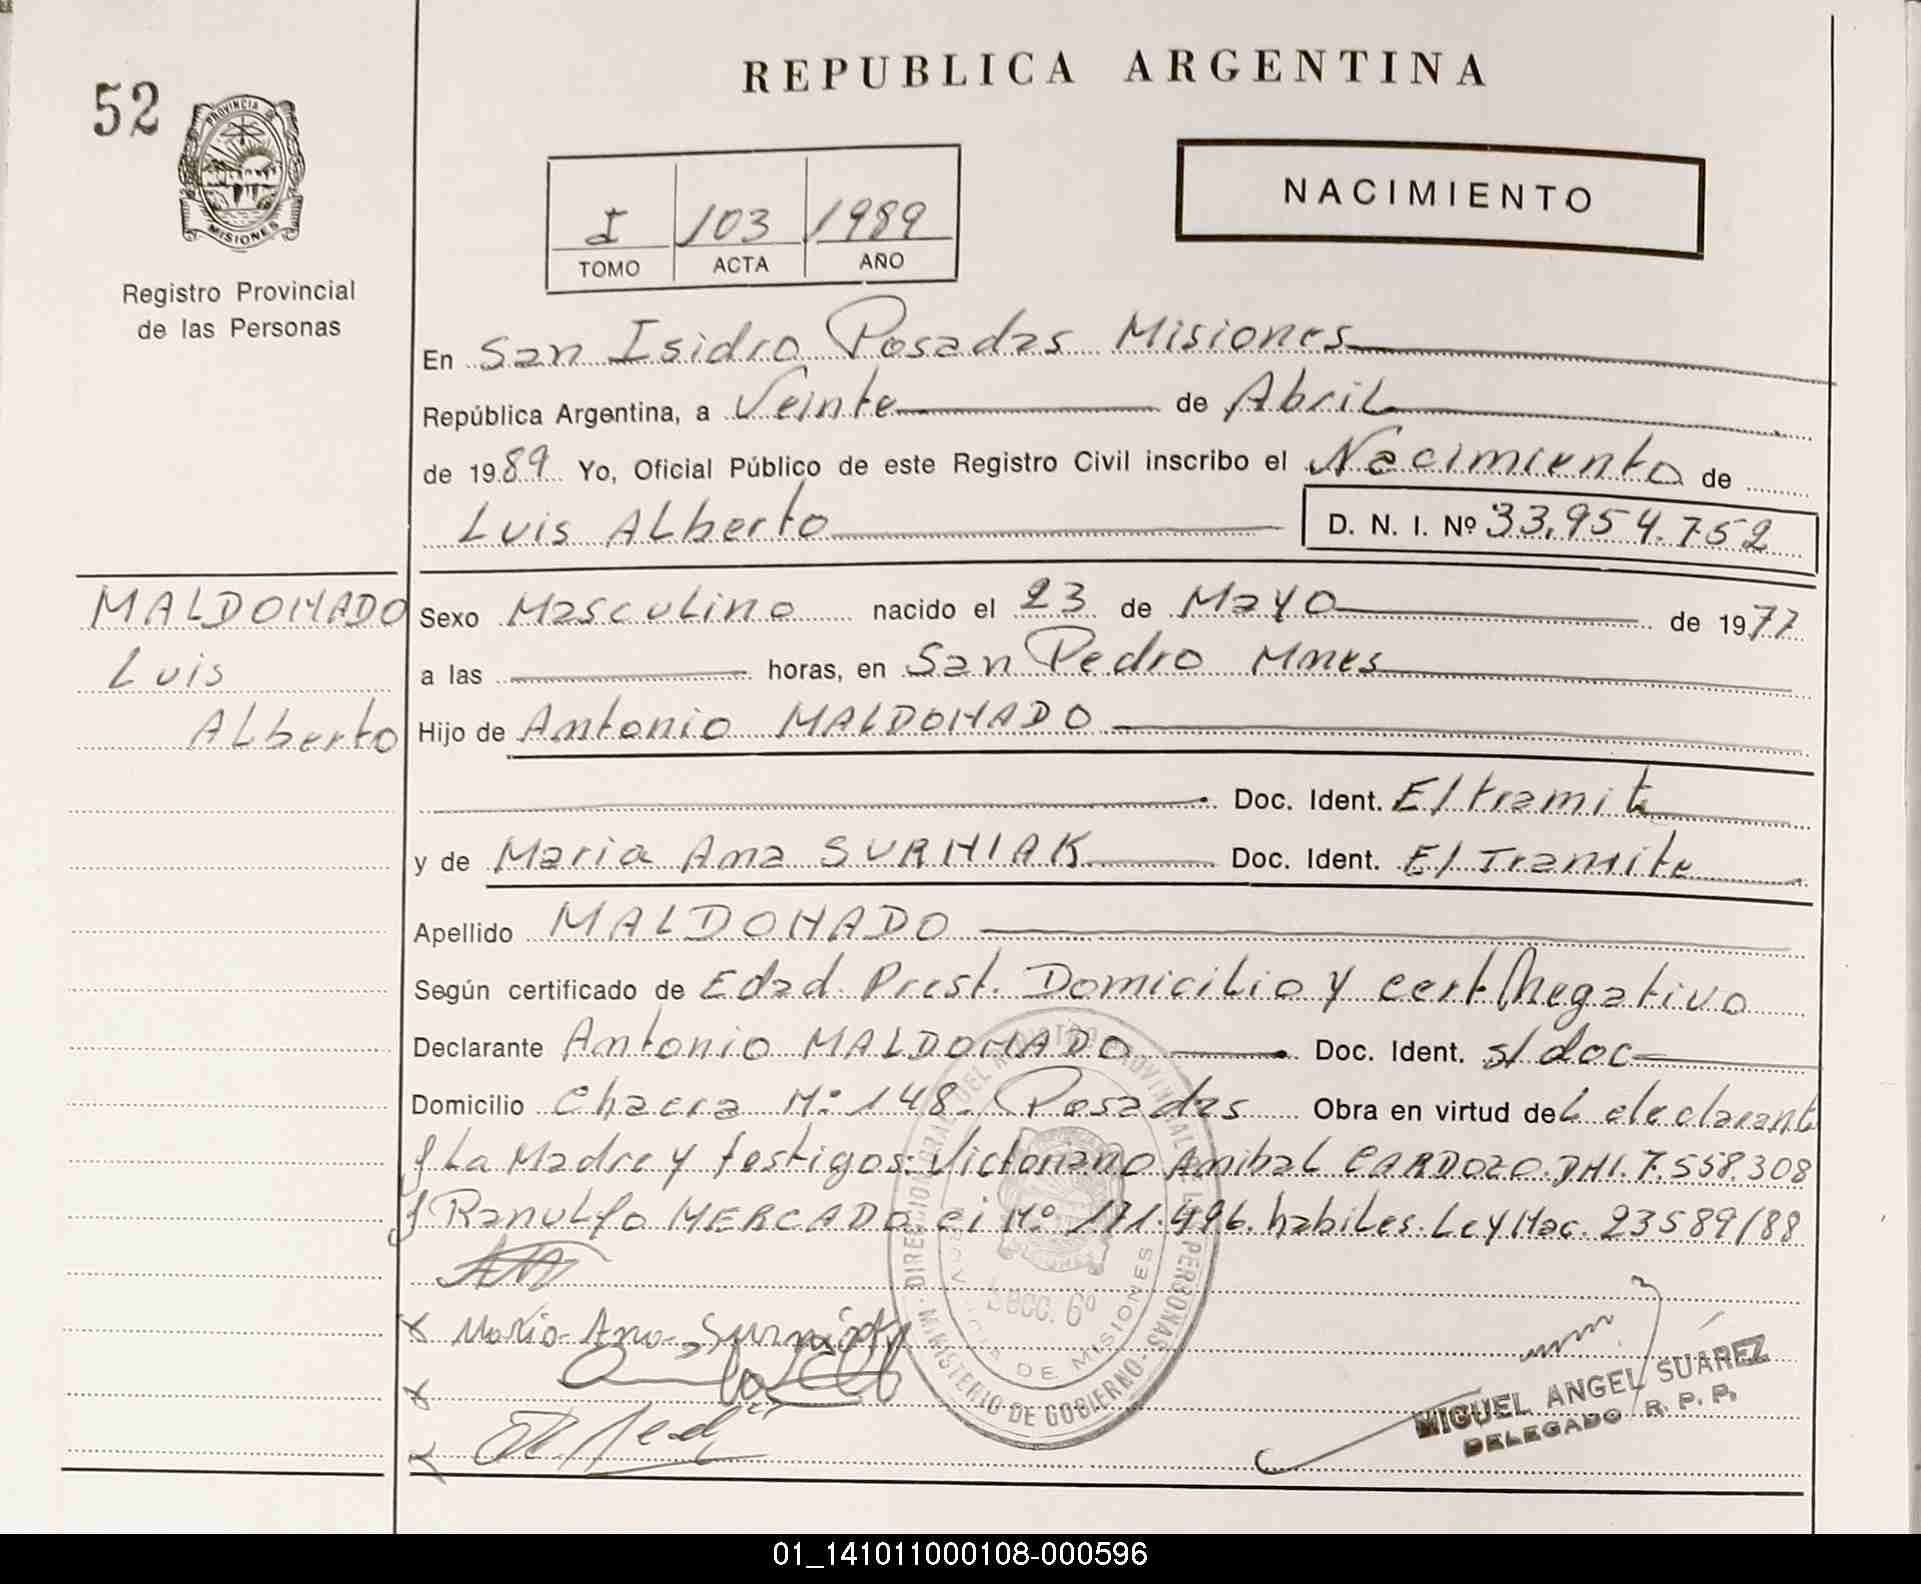 52
PROVINCIA DE
MISIONES
Registro Provincial
de las Personas
REPUBLICA ARGENTINA
I 103 1989
TOMO ACTA AÑO
NACIMIENTO
En San Isidro Posadas Misiones
República Argentina, a Veinte de Abril
de 1989 Yo, Oficial Público de este Registro Civil inscribo el Nacimiento de
Luis Alberto D. N. I. Nº 33.954.752
MALDONADO
Luis
Alberto
Sexo Masculino nacido el 23 de Mayo de 1977
a las horas, en San Pedro Mnes
Hijo de Antonio MALDONADO
Doc. Ident. E/tramite
y de Maria Ana SURNIAK Doc. Ident. E/Tramite
Apellido MALDONADO
Según certificado de Edad Prest. Domicilio y cert/negativo
Declarante Antonio MALDONADO Doc. Ident. s/doc
Domicilio Chacra Nº 148. Posadas Obra en virtud del declarant
y La Madre y testigos: Victoriano Anibal CARDOZO. DNI. 7.558.308
y Ranulfo MERCADO ci Nº 171.496. habiles. Ley Nac. 23589/88
x Maria Ana Surniak
x
x
DIRECCION GRAL. DEL REGISTRO PROVINCIAL DE LAS PERSONAS
MINISTERIO DE GOBIERNO
PROVINCIA DE MISIONES
Secc. 6º
MIGUEL ANGEL SUAREZ
DELEGADO R. P. P.
01_141011000108-000596